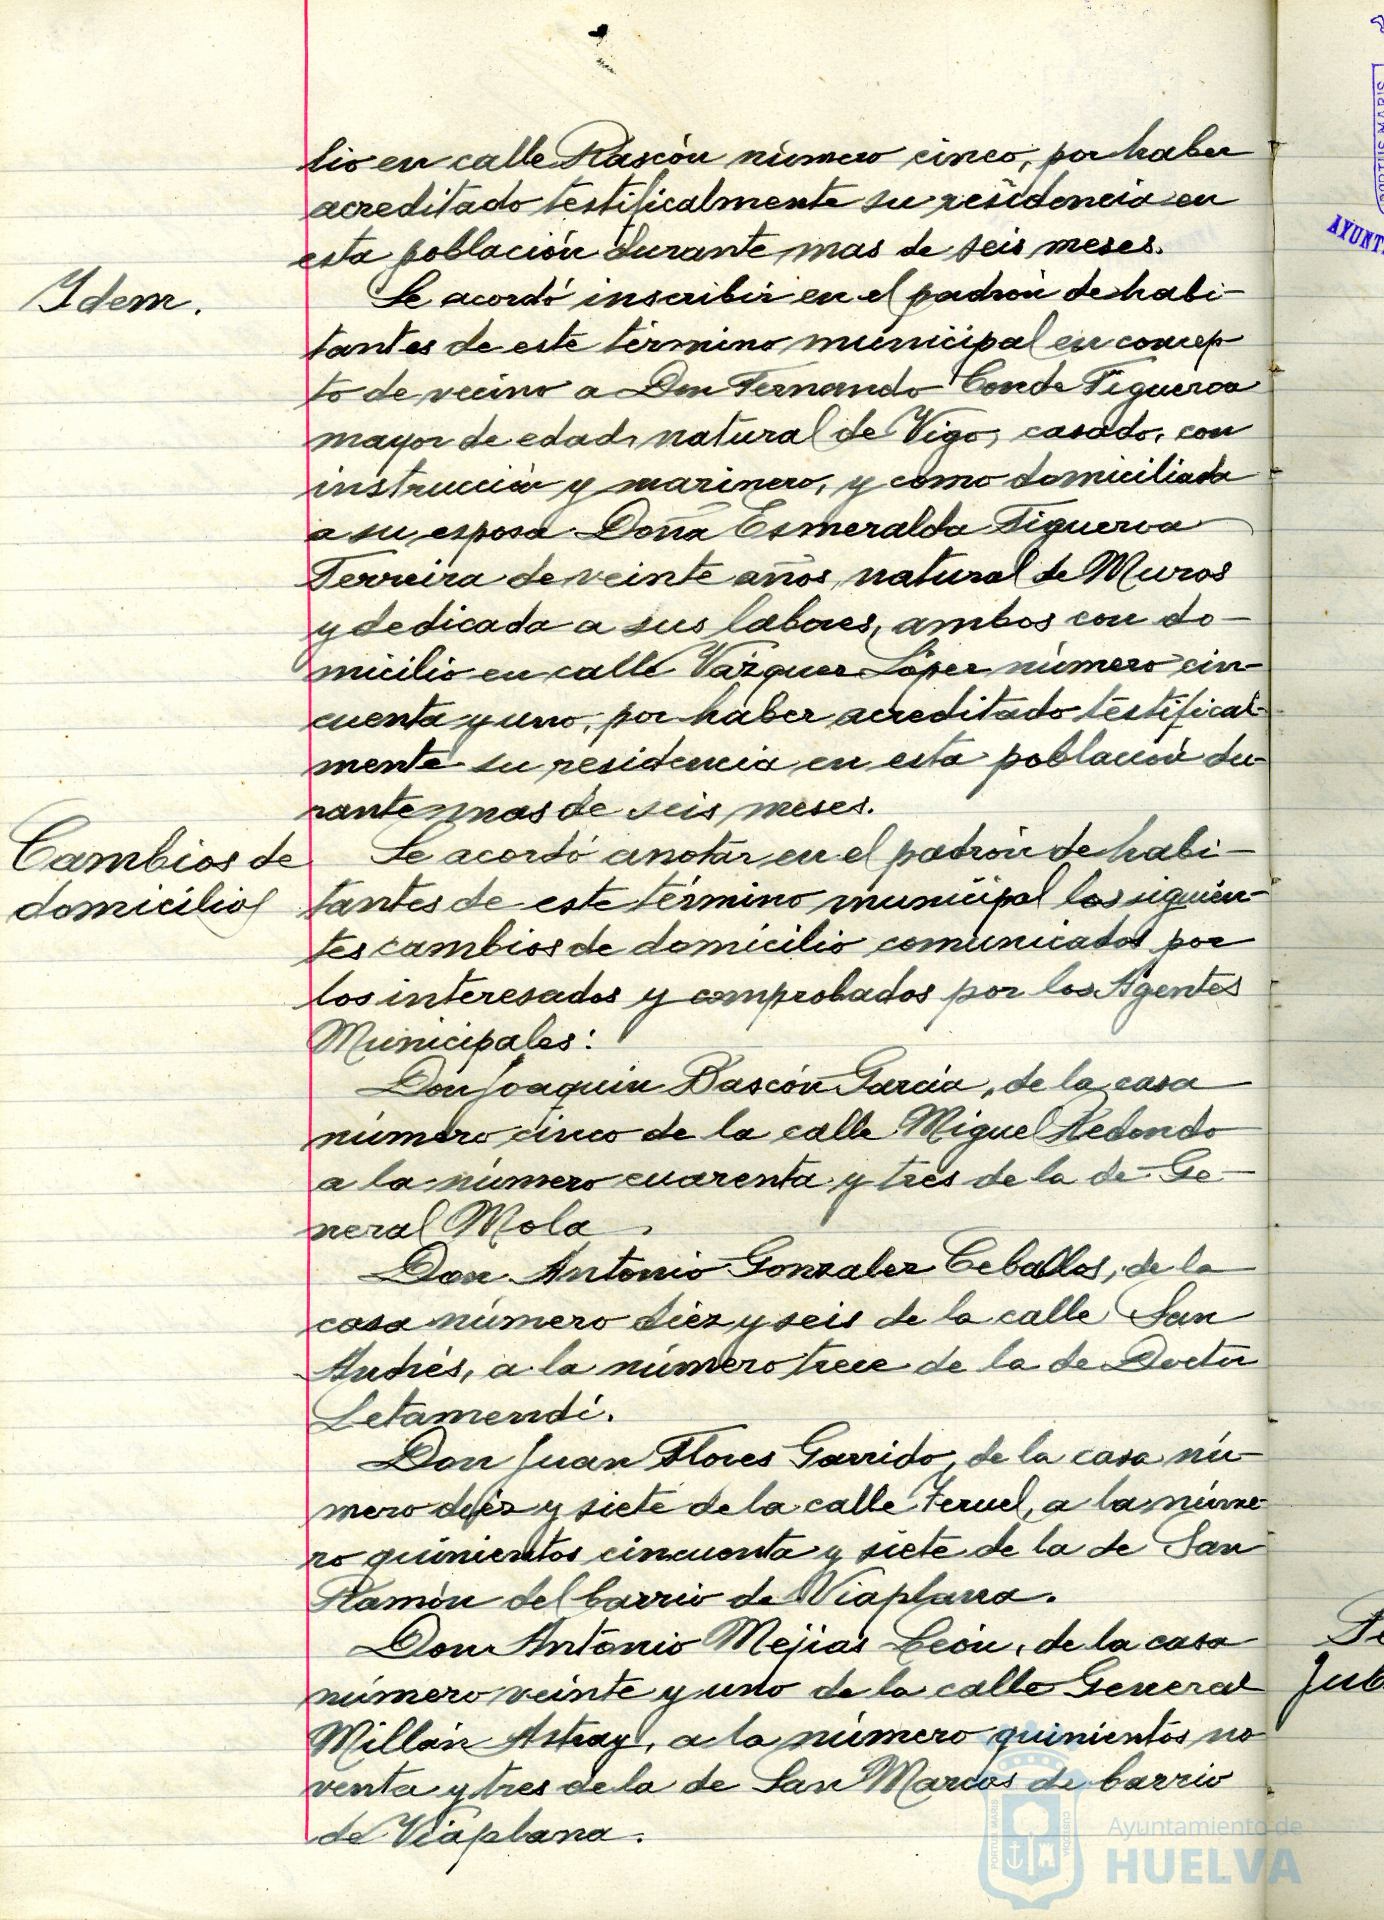 lio en calle Rascón número cinco, por haber
acreditado testificalmente su residencia en
esta población durante mas de seis meses.
Idem.
Se acordó inscribir en el padrón de habi-
tantes de este término municipal en concep-
to de vecino a Don Fernando Conde Figueroa
mayor de edad, natural de Vigo, casado, con
instrucción y marinero, y como domiciliada
a su esposa Doña Esmeralda Figueroa
Ferreira de veinte años, natural de Muros
y dedicada a sus labores, ambos con do-
micilio en calle Vázquez López número cin-
cuenta y uno, por haber acreditado testifical-
mente su residencia en esta población du-
rante mas de seis meses.
Cambios de
domicilio
Se acordó anotar en el padrón de habi-
tantes de este término municipal los siguien-
tes cambios de domicilio comunicados por
los interesados y comprobados por los Agentes
Municipales:
Don Joaquin Bascón García, de la casa
número cinco de la calle Miguel Redondo
a la número cuarenta y tres de la de Ge-
neral Mola.
Don Antonio Gonzalez Ceballos, de la
casa número diez y seis de la calle San
Andrés, a la número trece de la de Doctor
Letamendi.
Don Juan Flores Garrido, de la casa nú-
mero diez y siete de la calle Teruel, a la núme-
ro quinientos cincuenta y siete de la de San
Ramón del barrio de Viaplana.
Don Antonio Mejias León, de la casa
número veinte y uno de la calle General
Millán Astray, a la número quinientos no
venta y tres de la de San Marcos de barrio
de Viaplana.
PORTUS MARIS
AYUNT
Jub
PORTUS MARIS
CUSTODIA
Ayuntamiento de
HUELVA